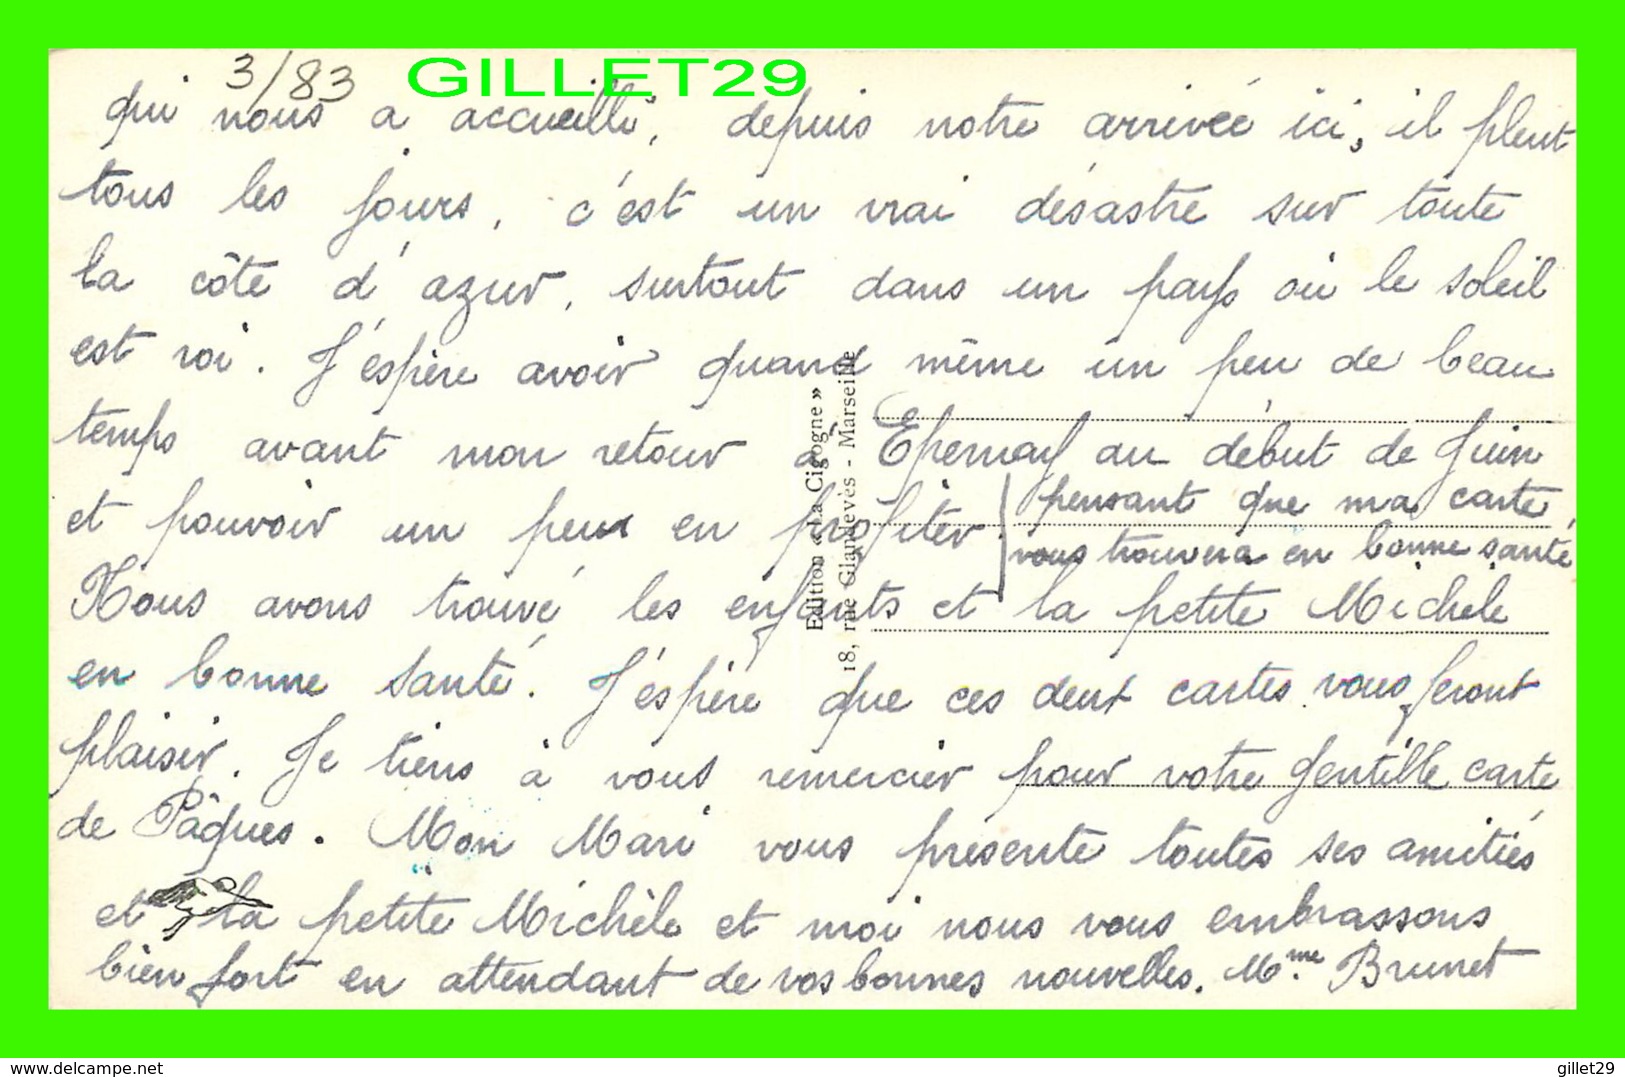 3/83
GILLET29
qui nous a accueilli, depuis notre arrivée ici, il pleut
tous les jours, c'est un vrai désastre sur toute
la côte d'azur, surtout dans un pays où le soleil
est roi. J'éspère avoir quand même un peu de beau
temps avant mon retour à Epernay au début de Juin
et pouvoir un peux en profiter
pensant que ma carte,
vous trouvera en bonne santé
Nous avons trouvé les enfants et la petite Michèle
en bonne santé. J'éspère que ces deux cartes vous feront
plaisir. Je tiens à vous remercier pour votre gentille carte
de Pâques. Mon Mari vous présente toutes ses amitiés
et la petite Michèle et moi nous vous embrassons
bien fort en attendant de vos bonnes nouvelles. Mme Brunet
Edition « La Cigogne »
18, rue Glandevès - Marseille
delcampe.net
gillet29